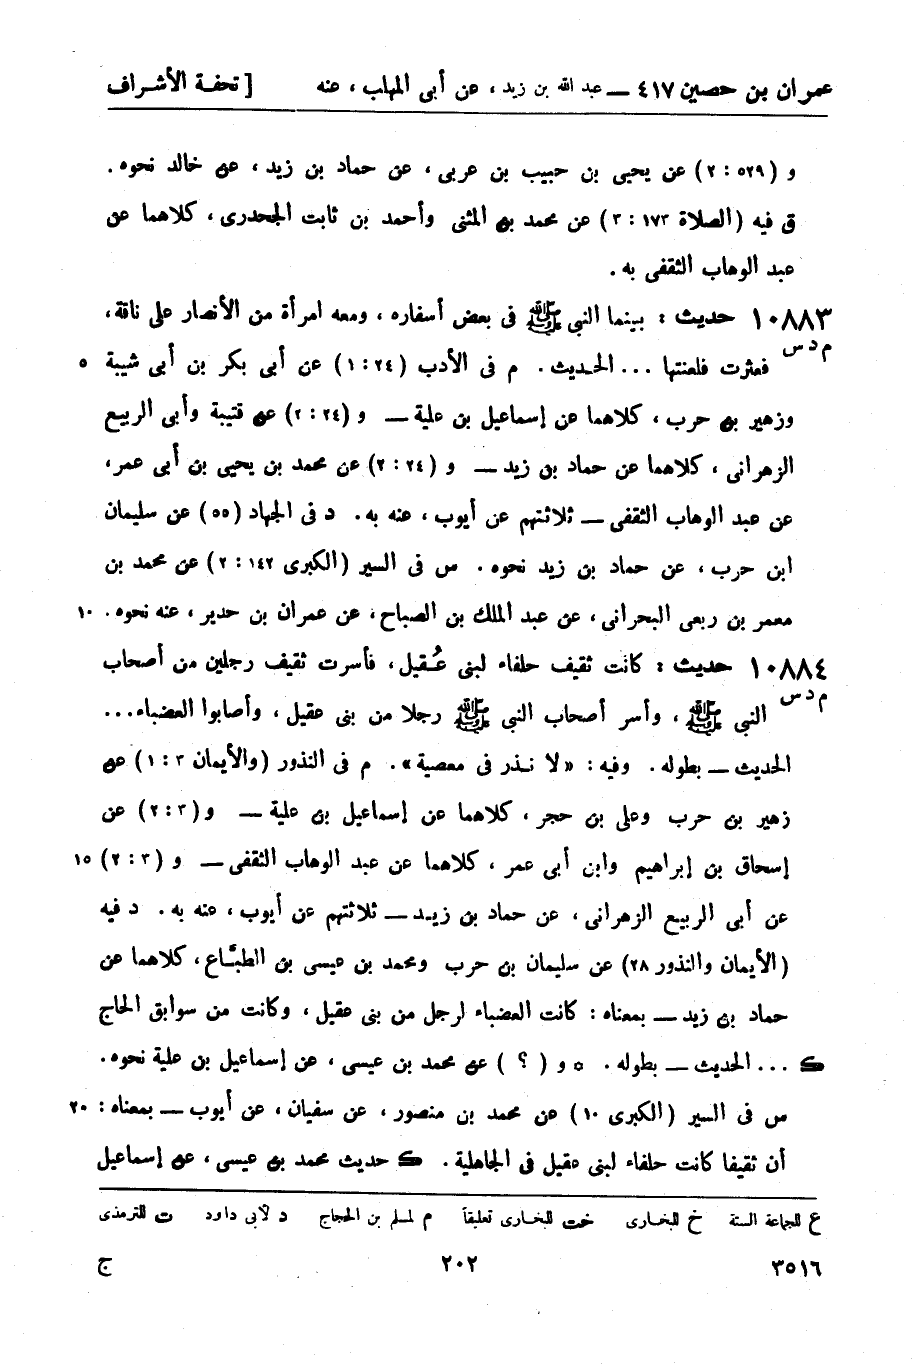 عمران بن حصين ٤١٧ — عبد الله بن زيد ، عن أبى المهلب ، عنه [ تحفة الأشراف
و (٥٢٩ : ٢) عن يحيى بن حبيب بن عربى ، عن حماد بن زيد ، عن خالد نحوه .
ق فيه (الصلاة ١٧٣ : ٣) عن محمد بن المثنى وأحمد بن ثابت الجحدرى ، كلاهما عن
عبد الوهاب الثقفى به .
١٠٨٨٣ حديث : بينما النبى ﷺ فى بعض أسفاره ، ومعه امرأة من الأنصار على ناقة ،
م د س فعثرت فلعنتها ... الحديث . م فى الأدب (٢٤ : ١) عن أبى بكر بن أبى شيبة ٥
وزهير بن حرب ، كلاهما عن إسماعيل بن علية — و (٢٤ : ٢) عن قتيبة وأبى الربيع
الزهرانى ، كلاهما عن حماد بن زيد — و (٢٤ : ٢) عن محمد بن يحيى بن أبى عمر ،
عن عبد الوهاب الثقفى — ثلاثتهم عن أيوب ، عنه به . د فى الجهاد (٥٥) عن سليمان
ابن حرب ، عن حماد بن زيد نحوه . س فى السير (الكبرى ١٤٢ : ٢) عن محمد بن
معمر بن ربعى البحرانى ، عن عبد الملك بن الصباح ، عن عمران بن حدير ، عنه نحوه . ١٠
١٠٨٨٤ حديث : كانت ثقيف حلفاء لبنى عُقيل ، فأسرت ثقيف رجلين من أصحاب
م د س النبى ﷺ ، وأسر أصحاب النبى ﷺ رجلا من بنى عقيل ، وأصابوا العضباء ...
الحديث — بطوله . وفيه : «لا نذر فى معصية» . م فى النذور (والأيمان ٣ : ١) عن
زهير بن حرب وعلى بن حجر ، كلاهما عن إسماعيل بن علية — و(٣ : ٢) عن
إسحاق بن إبراهيم وابن أبى عمر ، كلاهما عن عبد الوهاب الثقفى — و (٣ : ٢) ١٥
عن أبى الربيع الزهرانى ، عن حماد بن زيد — ثلاثتهم عن أيوب ، عنه به . د فيه
(الأيمان والنذور ٢٨) عن سليمان بن حرب ومحمد بن عيسى بن الطبَّاع ، كلاهما عن
حماد بن زيد — بمعناه : كانت العضباء لرجل من بنى عقيل ، وكانت من سوابق الحاج
ك ... الحديث — بطوله . ٥ و ( ؟ ) عن محمد بن عيسى ، عن إسماعيل بن علية نحوه .
س فى السير (الكبرى ١٠) عن محمد بن منصور ، عن سفيان ، عن أيوب — بمعناه : ٢٠
أن ثقيفا كانت حلفاء لبنى عقيل فى الجاهلية . ك حديث محمد بن عيسى ، عن إسماعيل
ع للجماعة الستة خ للبخارى خت للبخارى تعليقاً م لمسلم بن الحجاج د لأبى داود ت للترمذى
٣٥١٦ ٢٠٢ ج